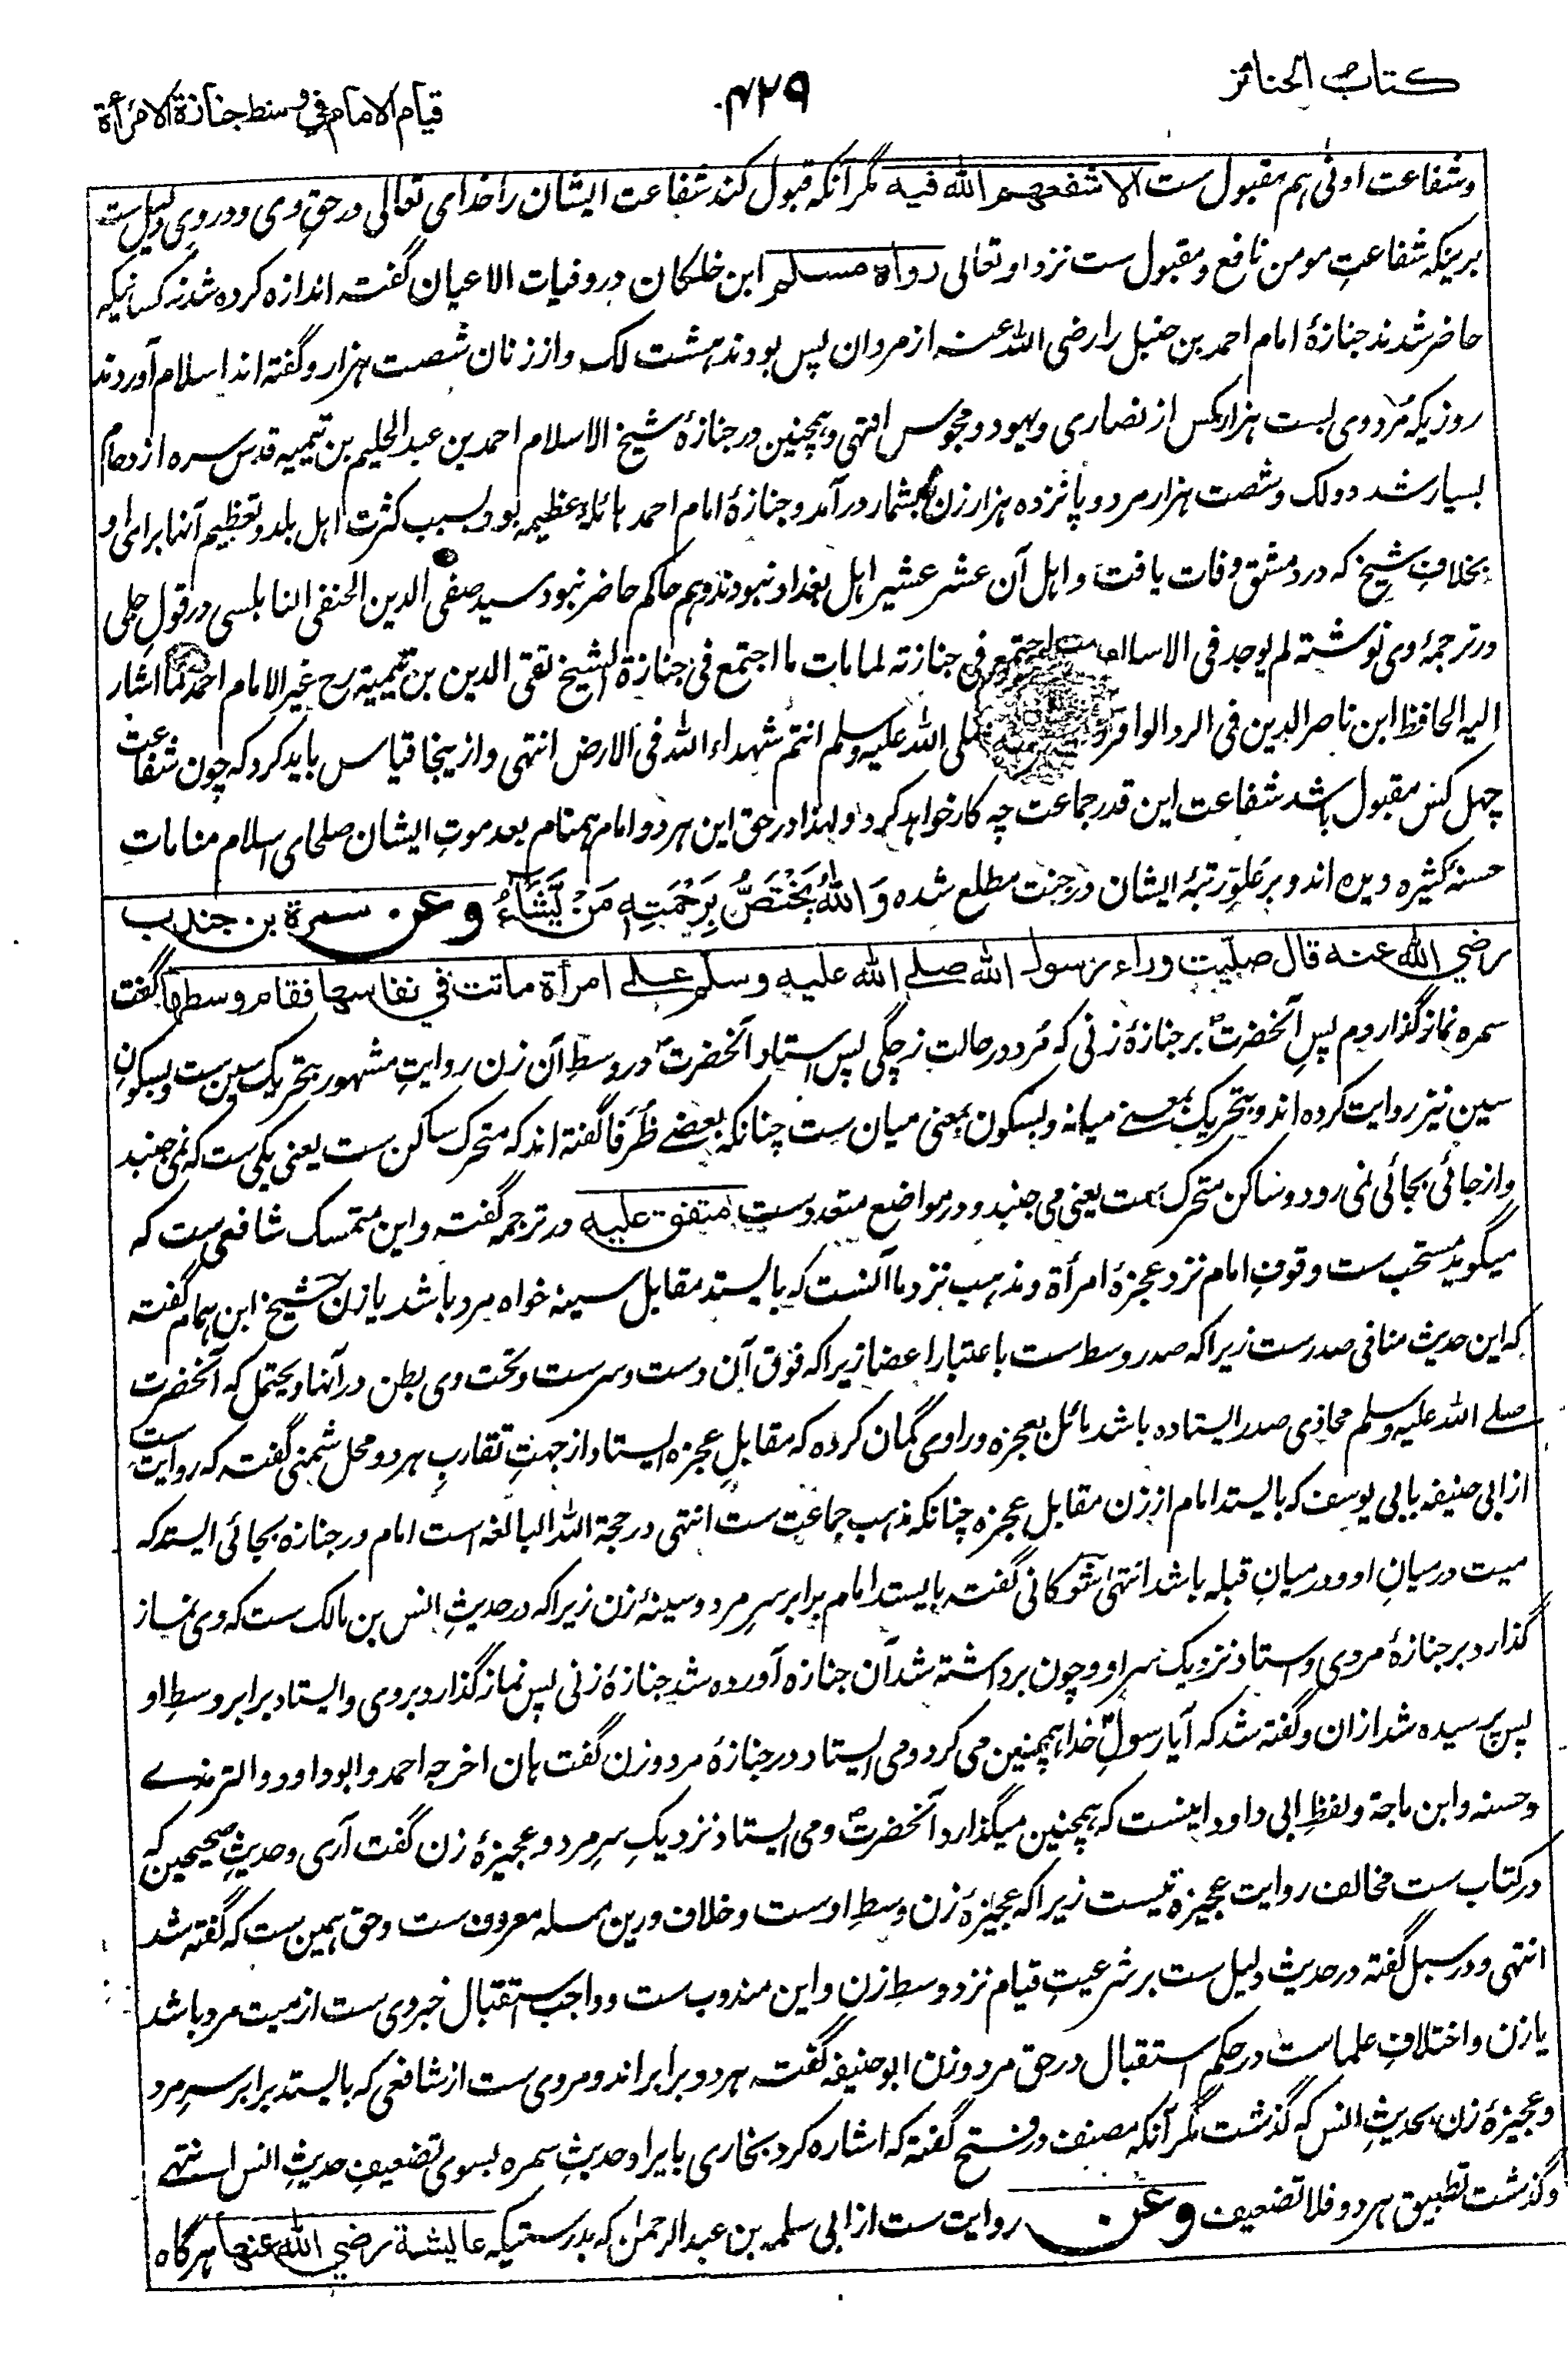 كتاب الجنائز
۴۲۹
قيام الامام في وسط جنازة الامرأة
وشفاعت اونی ہم مقبول ست الا شفعهم الله فيه مگر آنکہ قبول کند شفاعت ایشان را خدای تعالی در حق وی و در وی دلیل ست
برینکہ شفاعتِ مومن نافع و مقبول ست نزد او تعالی رواه مسلم ابن خلکان در وفیات الاعیان گفتہ اندازہ کردہ شد نہ کسانیکہ
حاضر شدند جنازۂ امام احمد بن حنبل را رضی اللہ عنہ از مردان پس بودند ہشت لک و از زنان شصت ہزار و گفتہ اند اسلام آوردند
روزیکہ مُرد وی بست ہزار کس از نصاری و یہود و مجوس انتہی و ہمچنین در جنازۂ شیخ الاسلام احمد بن عبد الحلیم بن تیمیہ قدس سرہ ازدحام
بسیار شد دو لک و شصت ہزار مرد و پانزدہ ہزار زن بشمار در آمد و جنازۂ امام احمد ہائلہ عظیمہ بود بسبب کثرت اہل بلد و تعظیم آنہا برای او
بخلافِ شیخ کہ در دمشق وفات یافت و اہل آن عشر عشیر اہل بغداد نبودند و ہم حاکم حاضر نبود سید صفی الدین الحنفی النابلسی در قول جلی
در ترجمۂ وی نوشتہ لم یوجد فی الاسلام اجتمع فی جنازتہ لما مات ما اجتمع فی جنازۃ الشیخ تقی الدین بن تیمیۃ رح غیر الامام احمد کما اشار
الیہ الحافظ ابن ناصر الدین فی الرد الوافر صلی اللہ علیہ وسلم انتم شہداء اللہ فی الارض انتہی و ازینجا قیاس باید کرد کہ چون شفاعت
چہل کس مقبول باشد شفاعت این قدر جماعت چہ کار خواہد کرد و لہذا در حق این ہر دو امام ہمنام بعد موتِ ایشان صلحای اسلام مناماتِ
حسنہ کثیرہ دیدہ اند و بر علوِّ رتبۂ ایشان در جنت مطلع شدہ وَاللهُ يَخْتَصُّ بِرَحْمَتِهِ مَنْ يَّشَاءُ وعن سمرة بن جندب
رضي الله عنه قال صلّيت وراء رسول الله صلى الله عليه وسلم على امرأة ماتت في نفاسها فقام وسطها گفت
سمرہ نماز گذاردم پسِ آنحضرتؐ بر جنازۂ زنی کہ مُرد در حالتِ زچگی پس استاد آنحضرتؐ در وسطِ آن زن روایتِ مشہور بتحریک سین ست و بسکونِ
سین نیز روایت کردہ اند و بتحریک بمعنے میانہ و بسکون بمعنی میان ست چنانکہ بعضے ظُرَفا گفتہ اند کہ متحرک ساکن ست یعنی یکی ست کہ نمی جنبد
و از جائی بجائی نمی رود و ساکن متحرک ست یعنی می جنبد و در مواضع متعدد ست متفق عليه در ترجمہ گفتہ و این متمسک شافعی ست کہ
میگوید مستحب ست وقوفِ امام نزد عجزۂ امرأۃ و مذہب نزد ما آنست کہ بایستد مقابل سینہ خواہ مرد باشد یا زن شیخ ابن ہمام گفتہ
کہ این حدیث منافی صدر ست زیرا کہ صدر وسط ست باعتبار اعضا زیرا کہ فوق آن دست و سر ست و تحت وی بطن در آنہا و یحتمل کہ آنحضرت
صلے اللہ علیہ وسلم محاذی صدر ایستادہ باشد مائل بعجزہ و راوی گمان کردہ کہ مقابلِ عجزہ ایستاد از جہتِ تقاربِ ہر دو محل شمنی گفتہ کہ روایت ست
از ابی حنیفہ یا ابی یوسف کہ بایستد امام از زن مقابلِ عجزہ چنانکہ مذہب جماعت ست انتہی در حجۃ اللہ البالغہ است امام در جنازہ بجائی ایستد کہ
میت درمیانِ او و درمیانِ قبلہ باشد انتہی شوکانی گفتہ بایستد امام برابر سرِ مرد و سینۂ زن زیرا کہ در حدیثِ انس بن مالک ست کہ وی نماز
گذارد بر جنازۂ مردی و استاد نزدیک سر او و چون برداشتہ شد آن جنازہ آوردہ شد جنازۂ زنی پس نماز گذارد بر وی و ایستاد برابر وسطِ او
پس پرسیدہ شد ازان و گفتہ شد کہ آیا رسولِ خدا ہمچنین می کرد و می ایستاد در جنازۂ مرد و زن گفت ہان اخرجہ احمد و ابو داود و الترمذے
و حسنہ و ابن ماجۃ و لفظِ ابی داود اینست کہ ہمچنین میگذارد آنحضرتؐ و می ایستاد نزدیکِ سرِ مرد و عجیزۂ زن گفت آری و حدیثِ صحیحین کہ
در کتاب ست مخالف روایت عجیزہ نیست زیرا کہ عجیزۂ زن وسطِ اوست و خلاف درین مسلہ معروف ست و حق ہمین ست کہ گفتہ شد
انتہی و در سبل گفتہ در حدیث دلیل ست بر شرعیتِ قیام نزد وسطِ زن و این مندوب ست و واجب استقبال جزوی ست از میت مرد باشد
یا زن و اختلافِ علما ست در حکمِ استقبال در حق مرد و زن ابو حنیفہ گفتہ ہر دو برابر اند و مروی ست از شافعی کہ بایستد برابر سرِ مرد
و عجیزۂ زن بحدیثِ انس کہ گذشت مگر آنکہ مصنف در فتح گفتہ کہ اشارہ کرد بخاری بایراد حدیثِ سمرہ بسوی تضعیفِ حدیثِ انس انتہے
و گذشت تطبیق ہر دو فلا تضعیف وعن روایت ست از ابی سلمہ بن عبد الرحمٰن کہ بدرستیکہ عایشة رضي الله عنها ہر گاہ